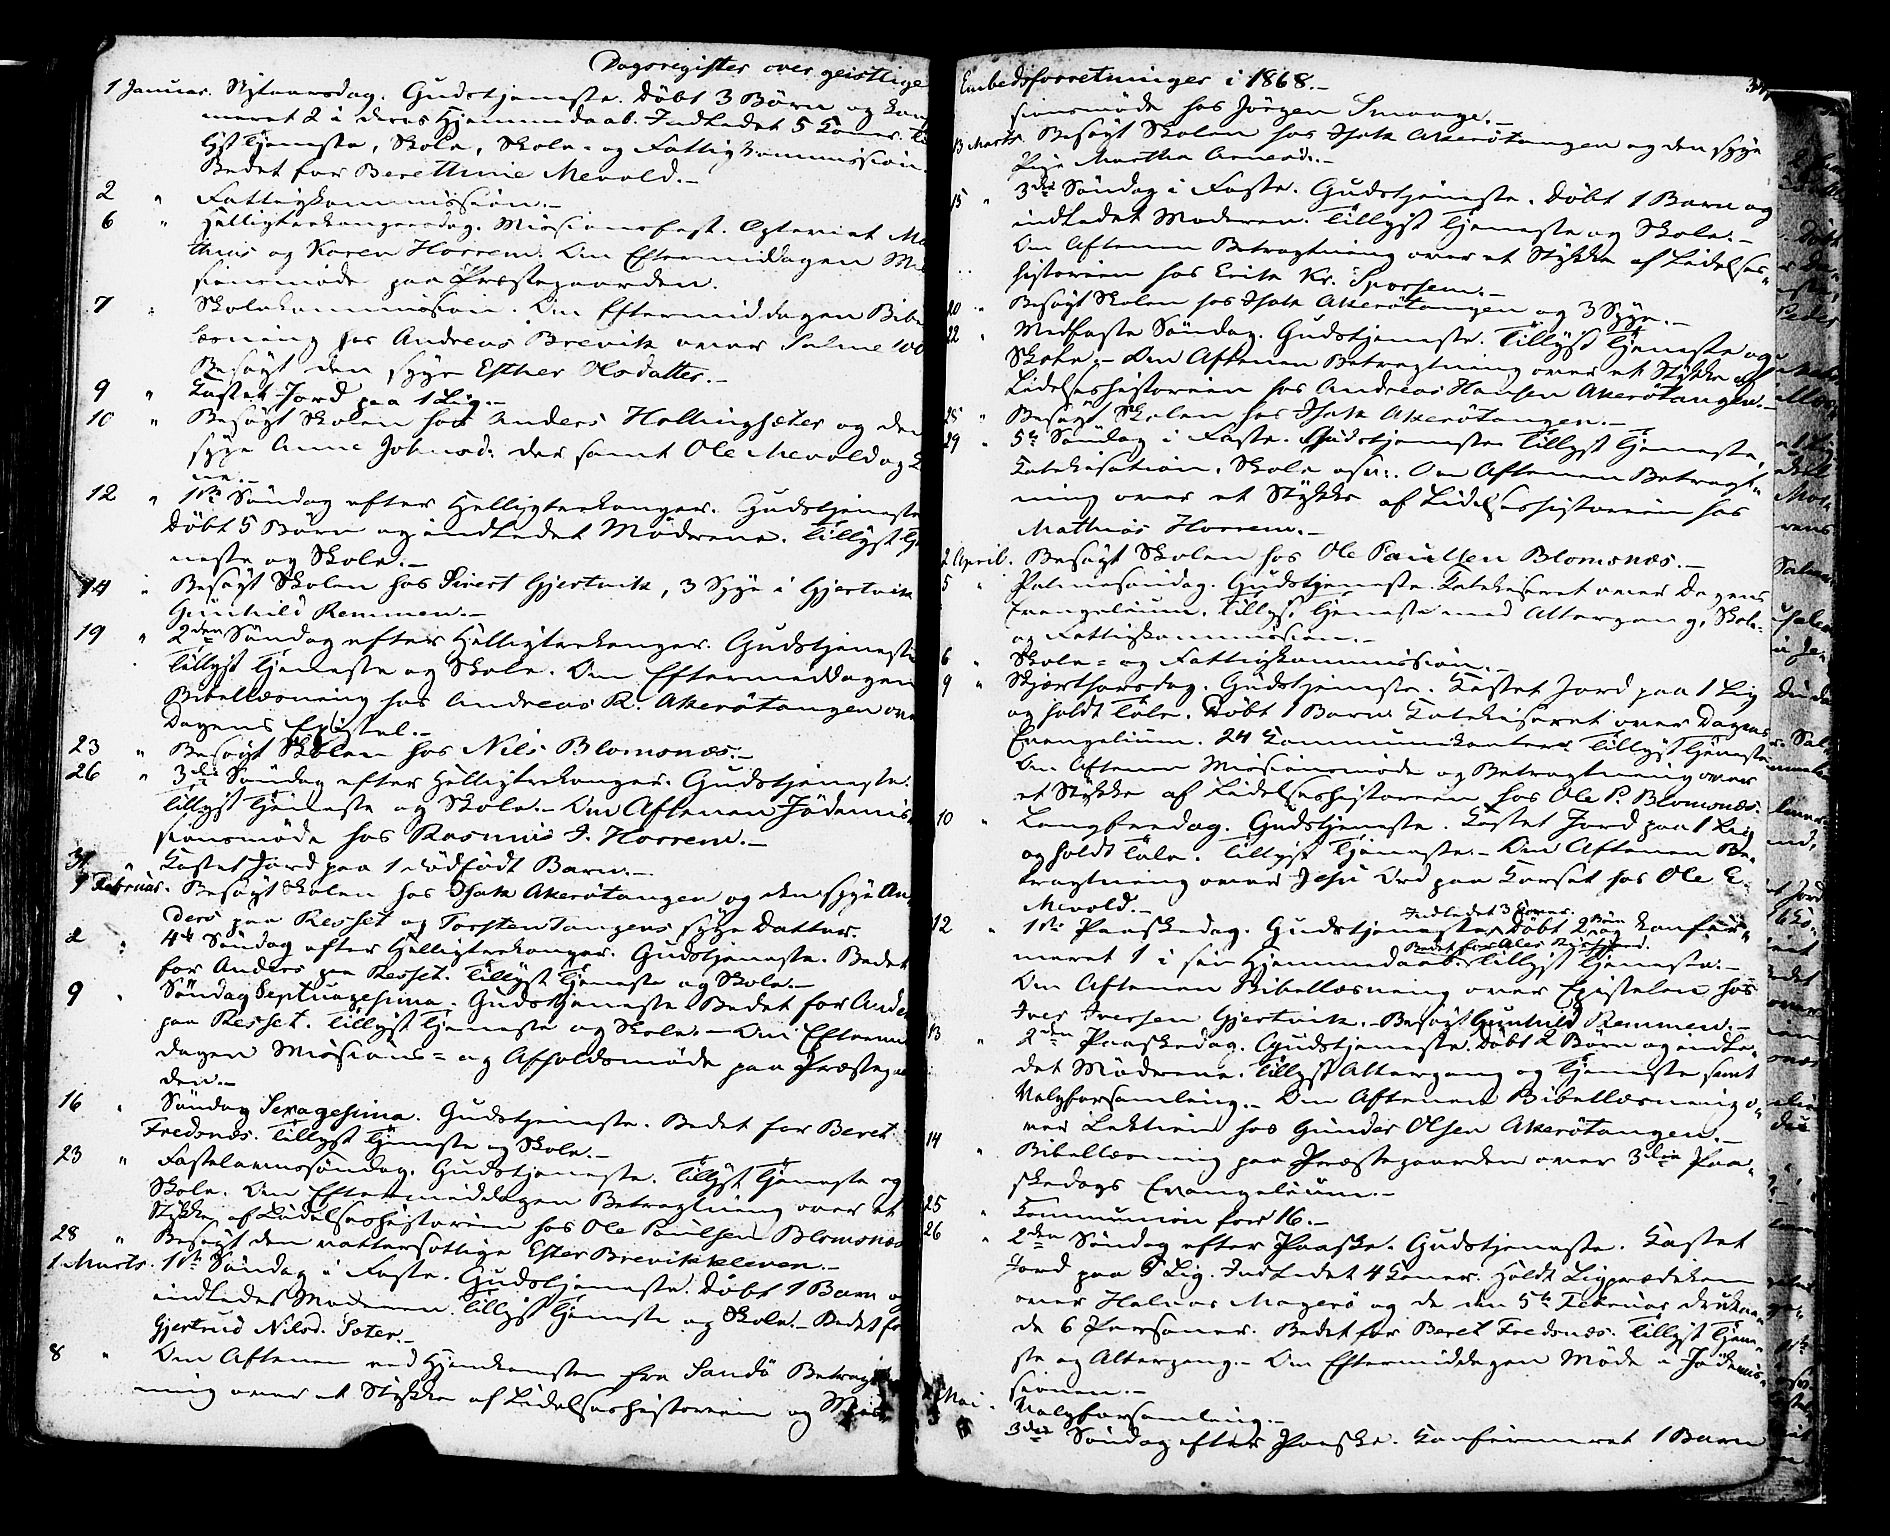 Dagsregister over geistlige
1 Januar. Nytaarsdag. Gudstjeneste. Døbt 3 Børn og kon
meret 2 i deres Hjemmedaab. Indledet 5 Koner. Til
lyst Tjeneste, Skole, Skole- og Fattigkommission.
Bedet for Berethine Mevold.-
2 " Fattigkommission.-
6 " Helligtrekongersdag. Missionsfest. Egteviet Ma
thias og Karen Horrem. Om Eftermiddagen Mis
sionsmøde paa Præstegaarden.
7 " Skolekommission. Om Eftermiddagen Bibel
læsning hos Andreas Brevik over Salme
Besøgt den syge Esther Olsdatter.-
9 " Kastet Jord paa 1 Lig.-
10 " Besøgt Skolen hos Anders Hollingsæter og den
syge Anne Johnsd. der samt Ole Mevold og
ne.-
12 " 1ste Søndag efter Helligtrekonger. Gudstjeneste
Døbt 5 Børn og indledet Mødrene. Tillyst Tje
neste og Skole.-
14 " Besøgt Skolen hos Sivert Gjertvik, 3 Syge i Gjertvik
Gunhild Remmen.-
19 " 2den Søndag efter Helligtrekonger. Gudstjeneste
Tillyst Tjeneste og Skole. Om Eftermiddagen
Bibellæsning hos Andreas R. Akerøtangen over
Dagens Epistel.-
23 " Besøgt Skolen hos Nils Blomsnæs.-
26 " 3die Søndag efter Helligtrekonger. Gudstjeneste.
Tillyst Tjeneste og Skole.- Om Aftenen Jødemis-
sionsmøde hos Rasmus J. Horrem.-
31 " Kastet Jord paa 1 dødfødt Barn.-
1 Februar. Besøgt Skolen hos Isak Akerøtangen og den syge An-
ders paa Resset og Torsten Tangens syge Datter.
2 " 4de Søndag efter Helligtrekonger. Gudstjeneste. Bedet
for Anders paa Resset. Tillyst Tjeneste og Skole.-
9 " Søndag Septuagesima. Gudstjeneste. Bedet for Anders
paa Resset. Tillyst Tjeneste og Skole.- Om Eftermid
dagen Missions= og Afholdsmøde paa Præstegaar
den.-
16 " Søndag Sexagesima. Gudstjeneste. Bedet for Beret
Fredsnæs. Tillyst Tjeneste og Skole.-
23 " Fastelavnssøndag. Gudstjeneste. Tillyst Tjeneste og
Skole. Om Eftermiddagen Betragtning over et
Stykke af Lidelseshistorien hos Ole Paulsen Blomsnæs
28 " Besøgt den vattersottige Ester Brevikkleven.-
1 Marts. 1ste Søndag i Faste. Gudstjeneste. Døbt 1 Barn og
indledet Moderen. Tillyst Tjeneste og Skole.- Bedet for
Gjertrud Nilsd. Soter.-
8 " Om Aftenen ved Hjemkomsten fra Sandø Betragt
ning over et Stykke af Lidelseshistorien og Mis
Embedsforretninger i 1868.-
sionsmøde hos Jørgen Smaage.-
13 Marts. Besøgt Skolen hos Isak Akerøtangen og den syge
Pige Martha Arnesd.-
15 " 3die Søndag i Faste. Gudstjeneste. Døbt 1 Barn og
indledet Moderen. Tillyst Tjeneste og Skole.-
Om Aftenen Betragtning over et Stykke af Lidelses-
historien hos Erik Kr. Sporsem.-
20 " Besøgt Skolen hos Isak Akerøtangen og 3 Syge.-
22 " Midfaste Søndag. Gudstjeneste. Tillyst Tjeneste og
Skole.- Om Aftenen Betragtning over et Stykke af
Lidelseshistorien hos Andreas Hansen Akerøtangen.-
25 " Besøgt Skolen hos Isak Akerøtangen.-
29 " 5te Søndag i Faste. Gudstjeneste. Tillyst Tjeneste,
Katekisation, Skole osv. Om Aftenen Betragt-
ning over et Stykke af Lidelseshistorien hos
Mathias Horrem.-
2 April. Besøgt Skolen hos Ole Paulsen Blomsnæs.-
5 " Palmesøndag. Gudstjeneste. Katekiseret over Dagens
Evangelium. Tillyst Tjeneste med Altergang, Skole-
og Fattigkommission.-
6 " Skole= og Fattigkommission.-
9 " Skjærthorsdag. Gudstjeneste. Kastet Jord paa 1 Lig
og holdt Tale. Døbt 1 Barn. Katekiseret over Dagens
Evangelium. 24 Kommunikanter. Tillyst Tjeneste
Om Aftenen Missionsmøde og Betragtning over
et Stykke af Lidelseshistorien hos Ole P. Blomsnæs.
10 " Langfredag. Gudstjeneste. Kastet Jord paa 1 Lig
og holdt Tale. Tillyst Tjeneste.- Om Aftenen Be-
tragtning over Jesu Ord paa Korset hos Ole E.
Mevold.-
Indledet 3 Koner.
12 " 1ste Paaskedag. Gudstjeneste. Døbt 2 Børn og konfir-
Bedet for
meret 1 i sin Hjemmedaab. Tillyst Tjeneste.-
Om Aftenen Bibellæsning over Epistelen hos
Iver Iversen Gjertvik.- Besøgt Gunhild Remmen.-
13 " 2den Paaskedag. Gudstjeneste. Døbt 2 Børn og indle-
det Mødrene. Tillyst Altergang og Tjeneste samt
Valgforsamling.- Om Aftenen Bibellæsning o-
ver Lektien hos Gunder Olsen Akerøtangen.-
14 " Bibellæsning paa Præstegaarden over 3die Paa-
skedags Evangelium.-
25 " Kommunion for 16.-
26 " 2den Søndag efter Paaske. Gudstjeneste. Kastet
Jord paa Lig. Indledet 4 Koner. Holdt Ligprædiken
over Halvor Magerø og de den 5te Februar drukne-
de 6 Personer. Bedet for Beret Fredsnæs. Tillyst Tjene-
ste og Altergang.- Om Eftermiddagen Møde i Jødemis-
sionen.-
Mai. Valgforsamling.-
3die Søndag efter Paaske. Konfirmeret 1 Barn